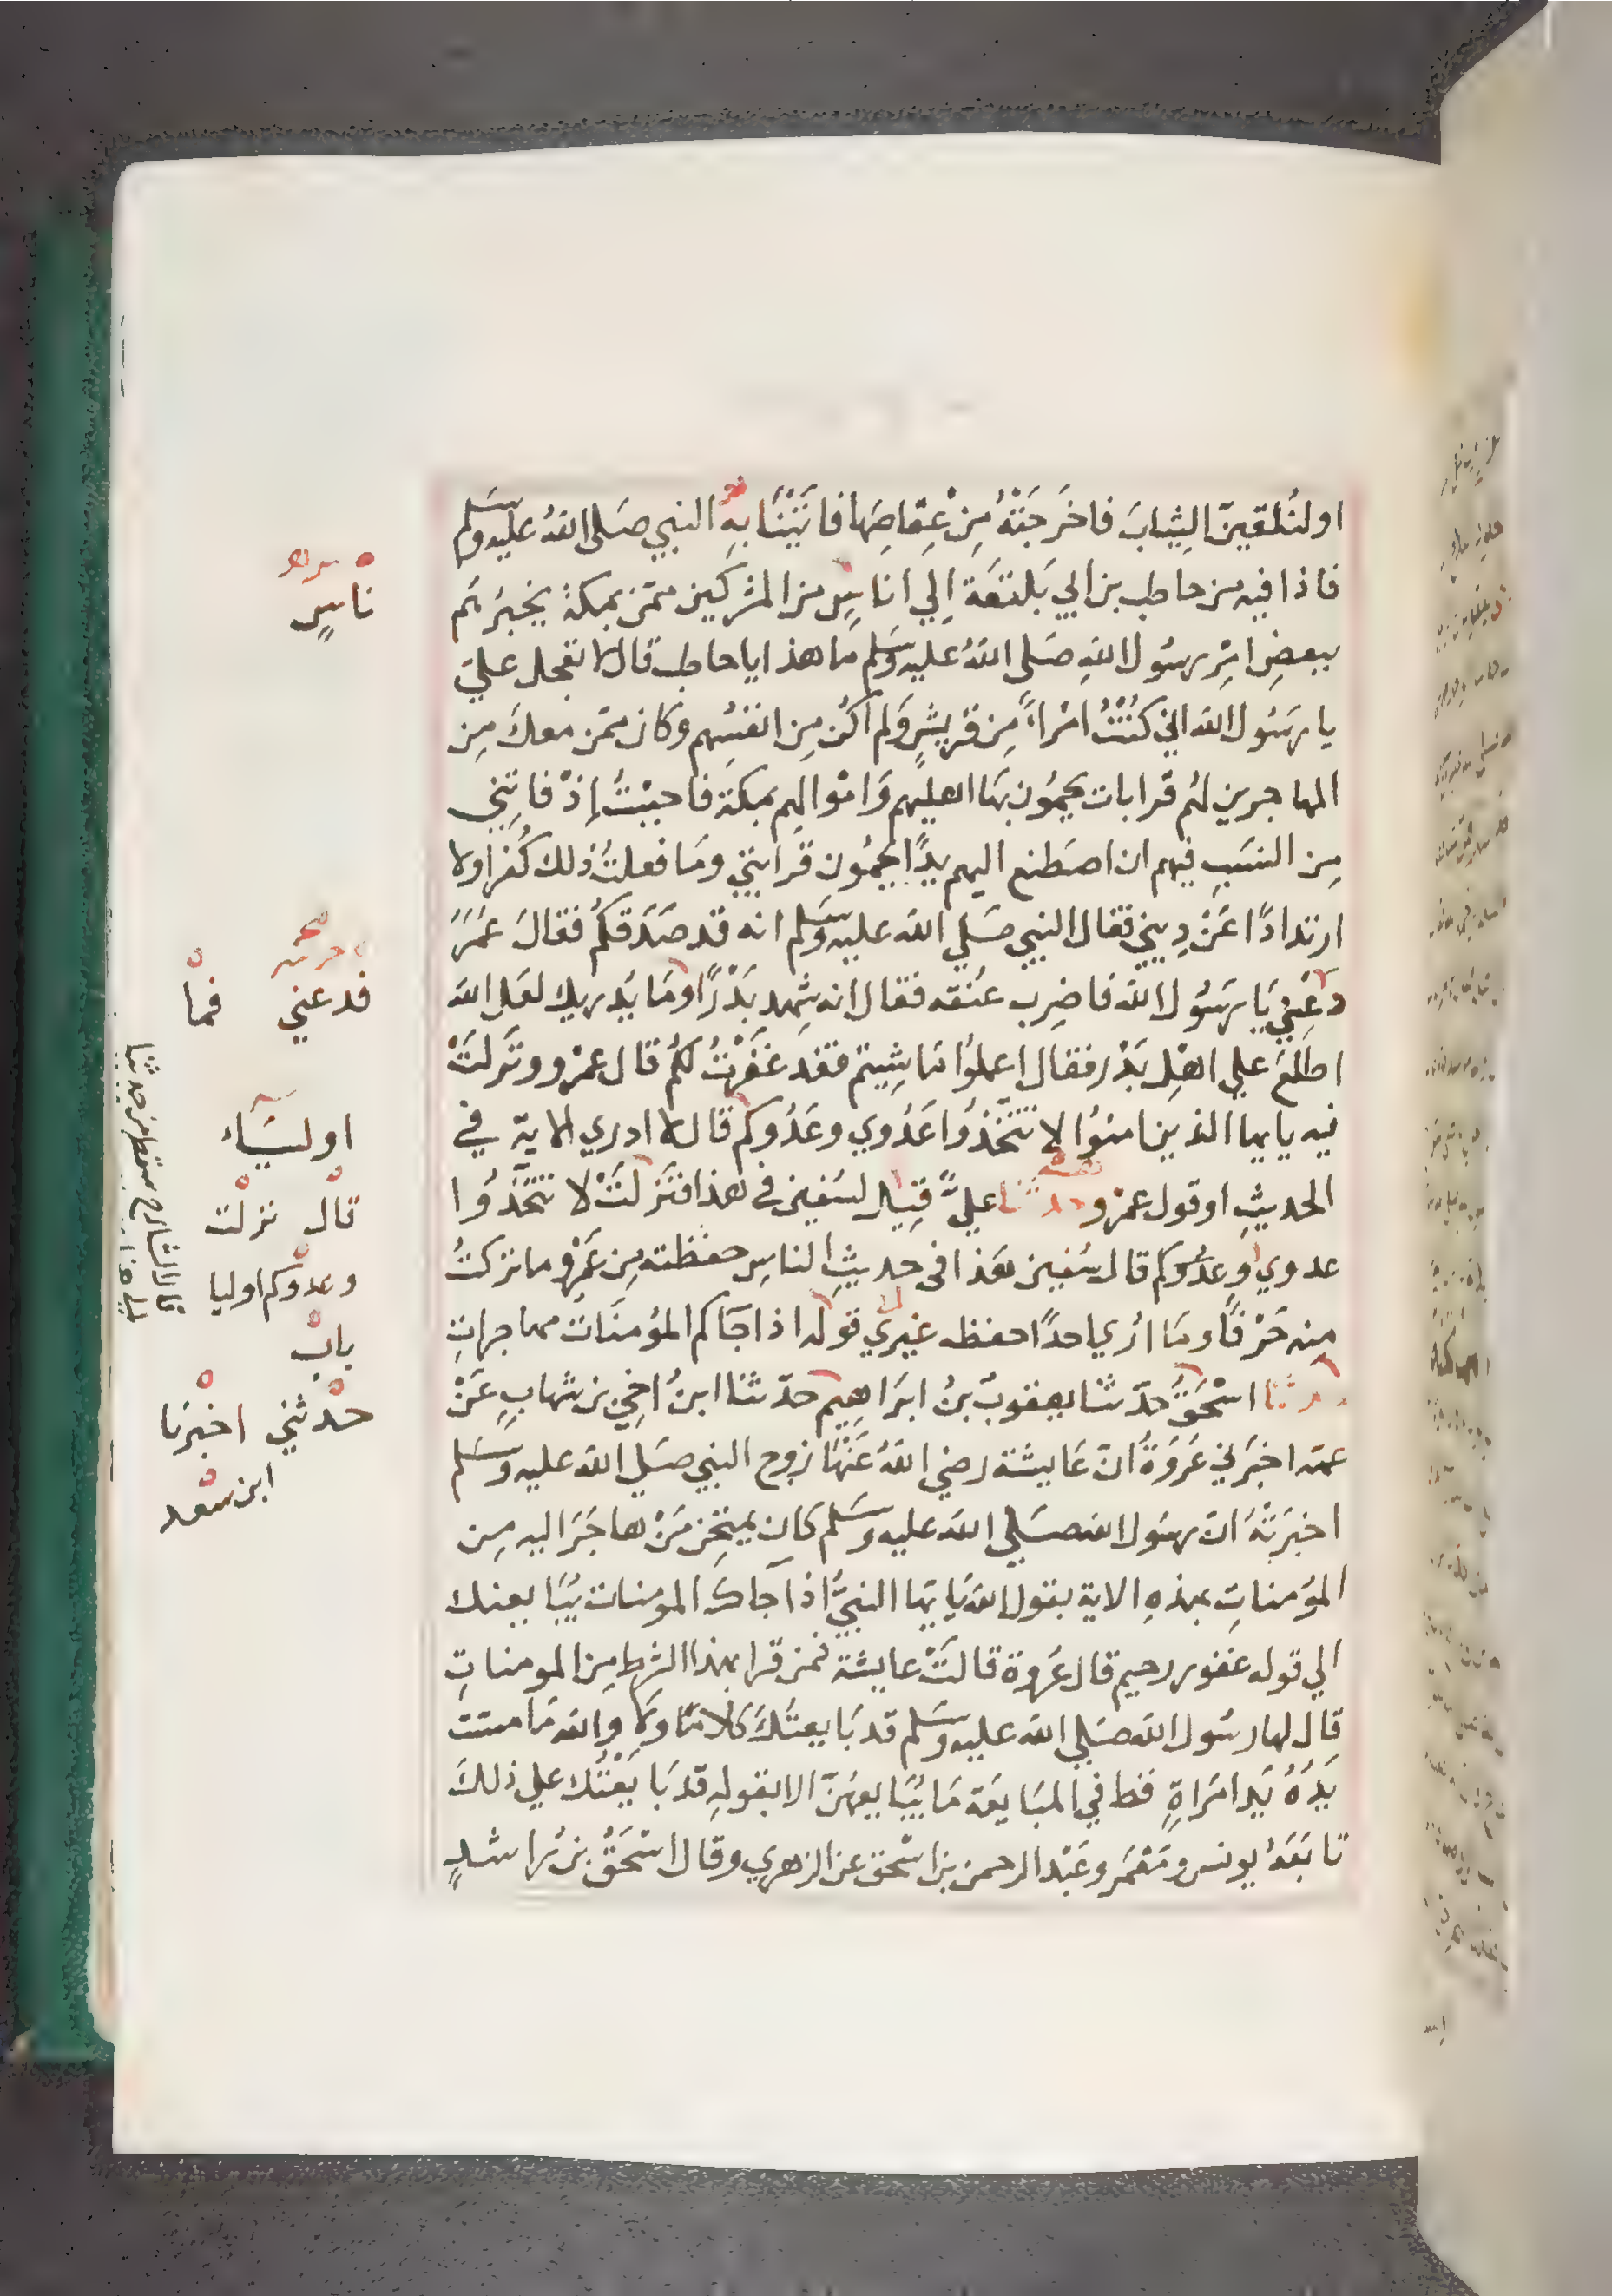 اولنُلقينّ الثِيابَ فاخرَجَتْهُ مِنْ عِقاصِهَا فاتَيْنَا بهِ النبي صَلى اللهُ عليه وسَلم
فاذا فيه من حاطب بن ابي بَلتعَة اِلي اناسٍ من المشركين ممّن بمكة يخبرُهم
ببعضِ امْرِ رسُول اللهِ صَلى اللهُ عليه وَسَلم مَا هذا ياحاطب قال لا تعجل عليّ
يا رسَول الله اني كنُتْتُ امْرأً مِن قريشٍ وَلم اكن مِن انفسُهم وَكان ممّن معكَ مِن
المهاجرين لهُم قرابات يحمُون بهَا اهليهم وَامْوالهم بمكة فاحببْتُ إذْ فاتَنِي
مِن النسَبِ فيهم ان اصطنع اليهم يدًا يحمُون قرابتي ومَا فعلتُ ذلك كُفرا ولا
ارتدادًا عَنْ دِيني فقال النبي صَلي الله عليه وسَلم انه قد صَدَقكمُ فقالَ عمَرُ
دعْنِي يَا رسَوُل الله فاضرِب عنُقه فقال انه شهد بَدْرًا ومَا يُدريك لعَل الله
اطّلعَ علي اهْل بَدْر فقال اعملوُا ما شِيتم فقد غفَرْتُ لكمُ قال عمْرو ونَزلتَْ
فيه يايها الذين امنوُا لا تتخّذُوا عَدُوي وعَدُوكم قال لا ادري الاية في
الحديثِ او قول عمْرو حدثنا عليٌّ قِيْل لسُفين في هذا فنَزلَتْ لا تتخّذُوا
عدوي وعدُوكم قال سُفين هَذا في حديثِ الناسِ حفظته مِن عَمْرٍو ما تركتُ
منه حَرْفاً ومَا اُري احداً حفظه غيرِي قوله اذا جَاكم المؤمنَاتُ مهاجراتٍ
حدثنا اسْحَقُ حدّثنا يعقوبُ بنُ ابرَاهيم حدّثنا ابنُ اخِي بن شهابٍ عَنْ
عمّه اخبَرني عُرَوةُ انّ عَايشة رضي اللهُ عَنْهَا زوج النبي صَلي الله عليه وسَلم
اخبرَتْهُ انّ رسُول الله صَلي الله عليه وسَلم كان يمتحِن مَنْ هاجَرَ اليه مِن
المؤمناتِ بهذهِ الاية بقول الله يَا يّها النبيُّ اذا جَاكَ المومنات يُبَايعنك
الي قوله غفور رحيم قال عُروة قالتَْ عايشة فمن قرا بهذا الشرط مِن المومناتِ
قال لها رسُول الله صَلي الله عليه وسَلم قد بَايعتُكَ كلاماً ولا والله مَا مسّت
يَدهُ يَد امرَاةٍ قط في المبَايعَة مَا يُبَايعهُنّ الا بقولهِ قد بَايَعْتُك علي ذلكَ
تابَعَهُ يونس ومَعْمَر وعَبْد الرحمن بن اسْحق عن الزهري وقال اسْحَقُ بنُ رَاشدٍ
ناسٍ
فدعني فما
اوليَاء
قال نزلت
وعدوّكم اوليا
بابْ
حدثني اخبرَنا
ابن سعد